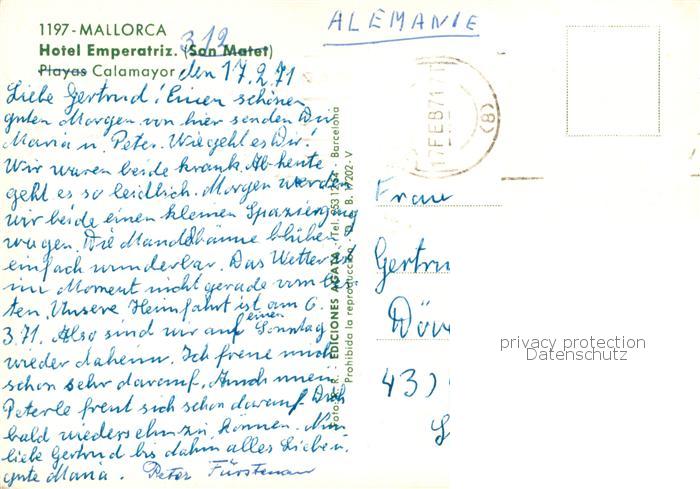 ALEMANIE
1197-MALLORCA
Hotel Emperatriz. (Son Matet)
312
Playas Calamayor den 17.2.71
Liebe Gertrud! Einen schönen
guten Morgen von hier senden Dir
Maria u. Peter. Wie geht es Dir?
Wir waren beide krank. Ab heute
geht es so leidlich. Morgen werden
wir beide einen kleinen Spaziergang
wagen. Die Mandelbäume blühen
einfach wunderbar. Das Wetter ist
im Moment nicht gerade vom bes-
ten. Unsere Heimfahrt ist am 6.
3.71. Also sind wir auf einen Sonntag
wieder daheim. Ich freue mich
schon sehr darauf. Auch mein
Peterle freut sich schon darauf Dich
bald wiedersehn zu können. Nun
liebe Gertrud bis dahin alles Liebe u.
gute Maria. Peter Fürstenau
EDICIONES AGATA. Tel. Barcelona
Prohibida la reproducción. D. L. B. 17202-V
17 FEB 71
(8)
Frau
Gertru
Döv
43)
privacy protection
Datenschutz